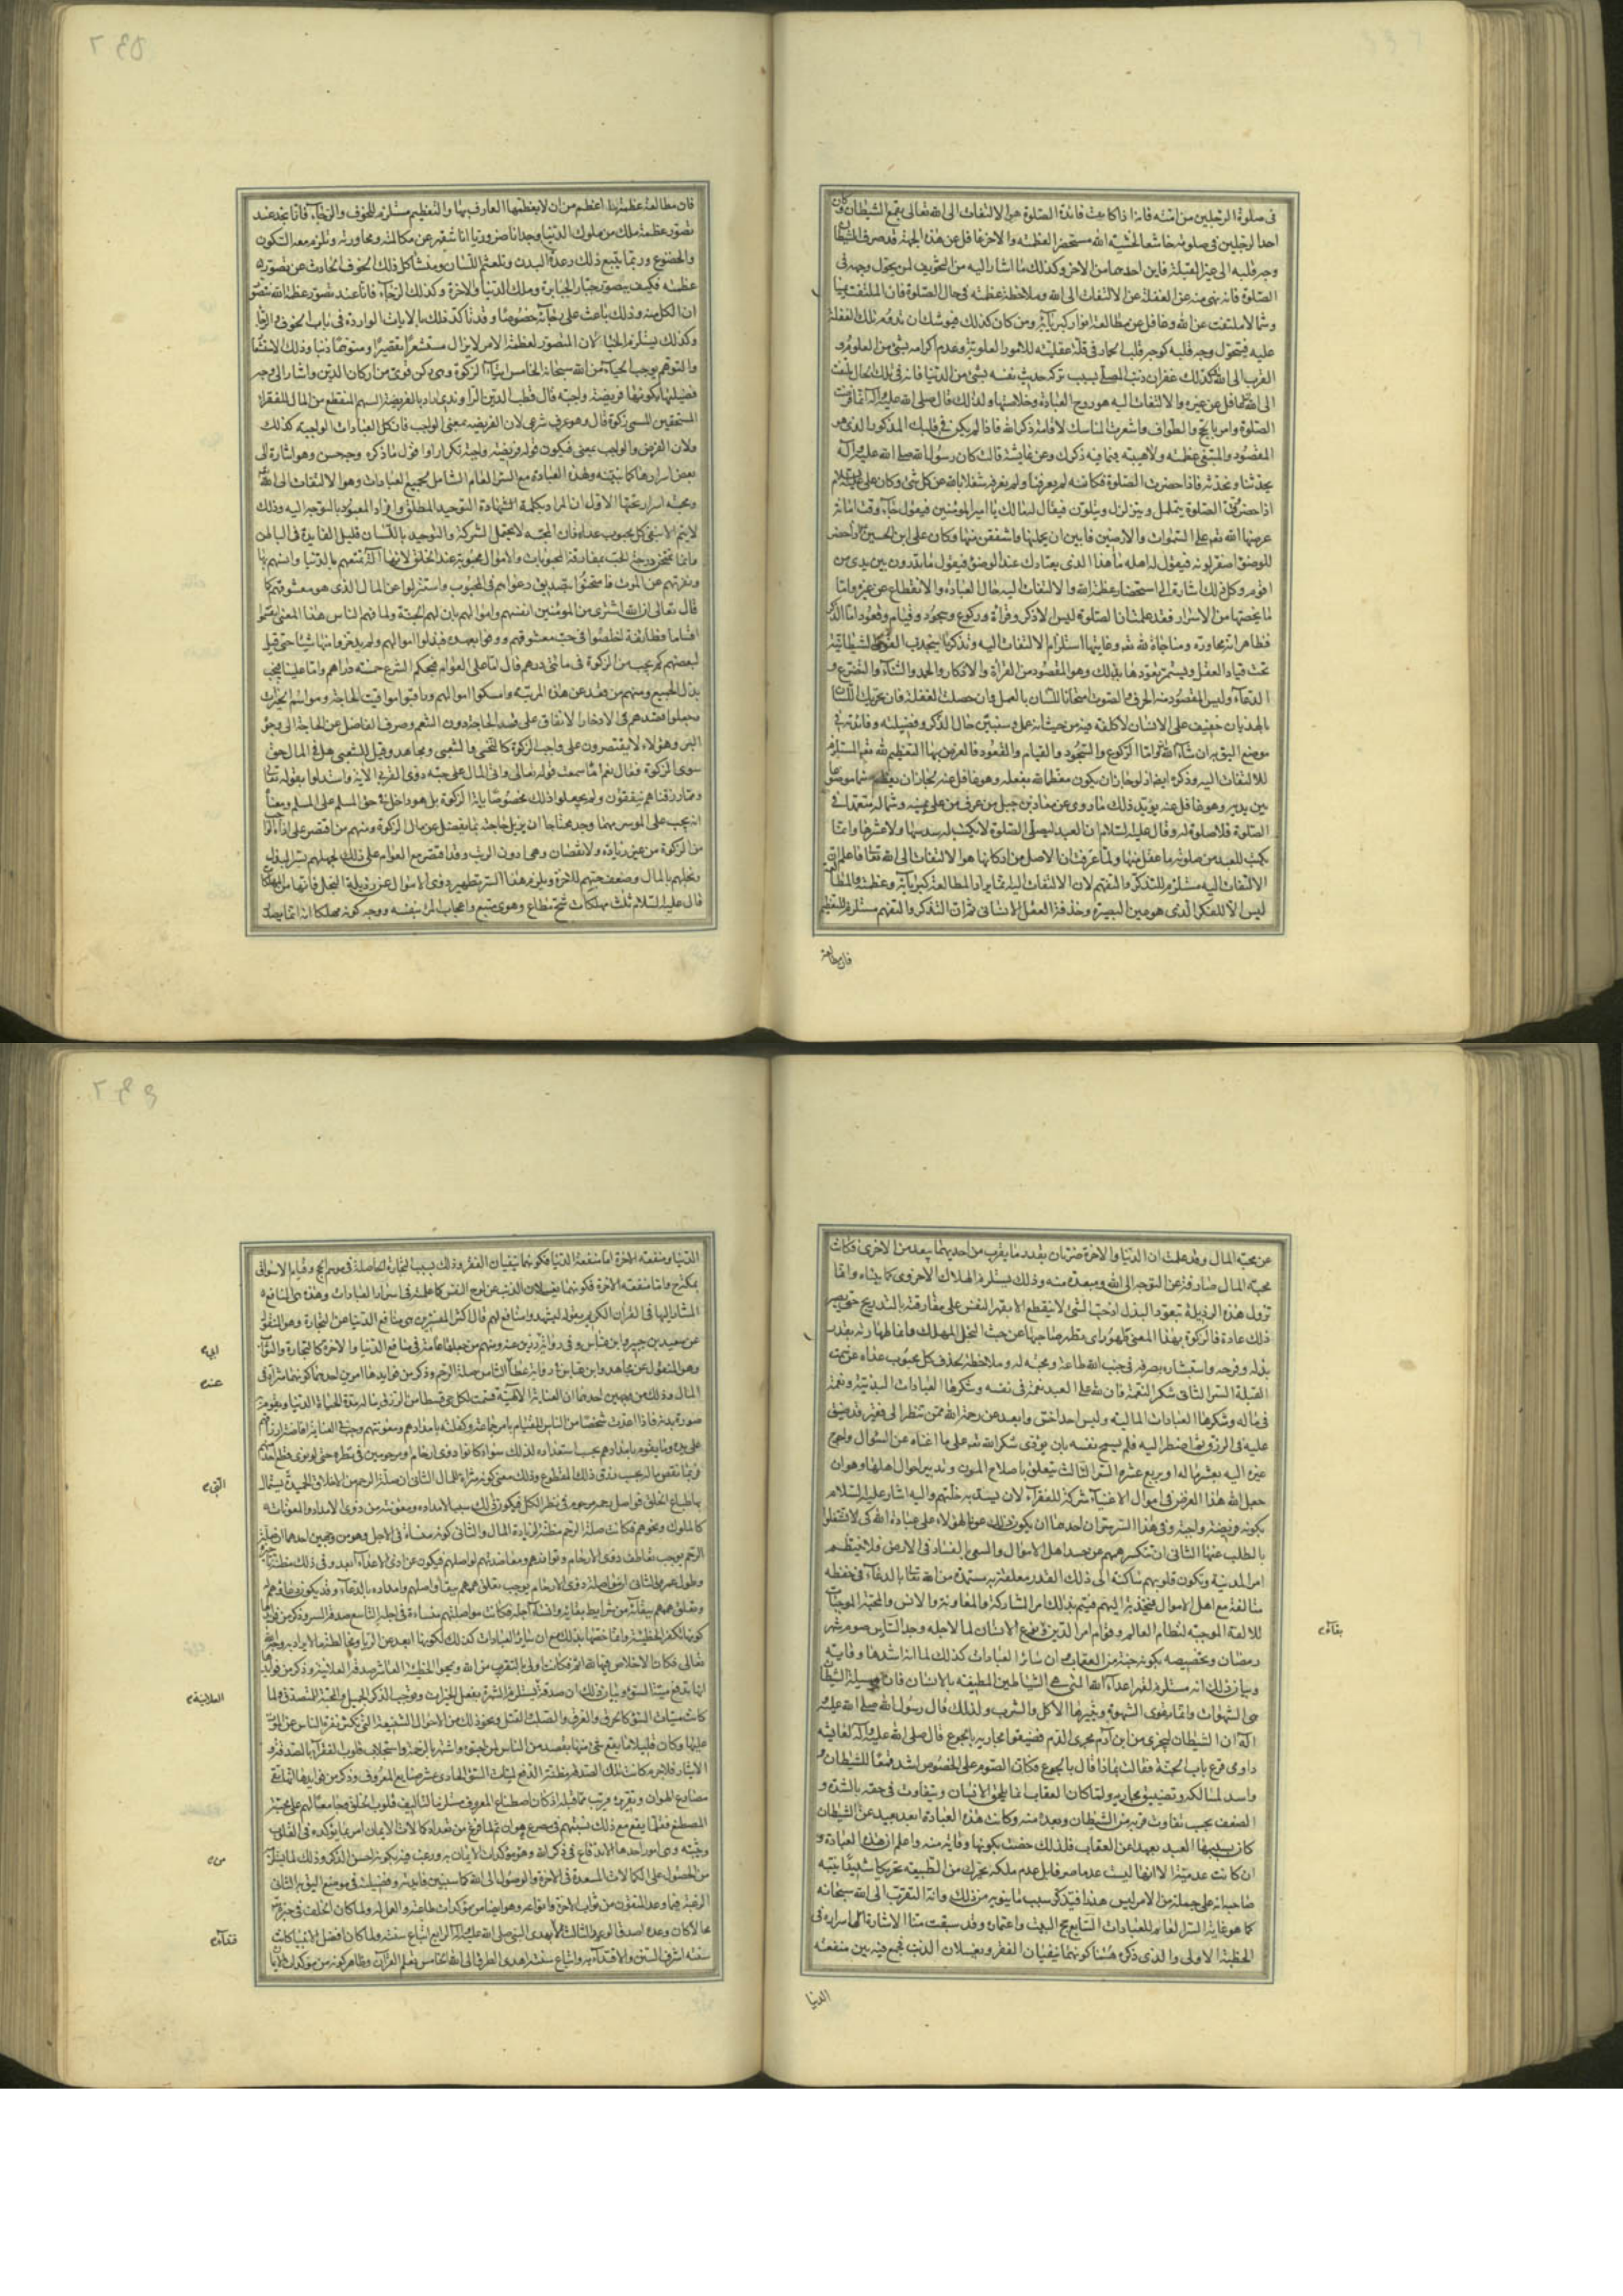 في صلوة الرجلين من امته فانه اذا كانت فائدة الصلوة هو الالتفات الى الله تعالى بقمع الشيطان وكان
احد الرجلين في صلوته خاشعا لخشية الله مستحضرا لعظمته والاخر غافل عن هذه الجهة قد صرف الشيطان
وجه قلبه الى غير القبلة فاين احدهما من الاخر وكذلك ما اشار اليه من التخويف لمن يحول وجهه في
الصلوة فانه نهى منه عن الغفلة عن الالتفات الى الله وملاحظة عظمته في حال الصلوة فان الملتفت يمينا
وشمالا ملتفت عن الله وغافل عن مطالعة انوار كبريائه ومن كان كذلك فيوشك ان تدوم تلك الغفلة
عليه فيتحول وجه قلبه كوجه قلب الحمار في قلة عقليته للامور العلوية وعدم اكرامه بشئ من العلوم و
القرب الى الله وكذلك غفران ذنب المصلي بسبب تركه حديث نفسه بشئ من الدنيا فانه في تلك الحال ملتفت
الى الله غافل عن غيره والالتفات اليه هو روح العبادة وخلاصتها ولذلك قال صلى الله عليه وآله انما فرضت
الصلوة وامر بالحج والطواف واشعرت المناسك لاقامة ذكر الله فاذا لم يكن في قلبك المذكور الذي هو
المقصود والمبتغى عظمة ولا هيبة فما قيمة ذكرك وعن عايشة قالت كان رسول الله صلى الله عليه وآله
يحدثنا ونحدثه فاذا حضرت الصلوة فكانه لم يعرفنا ولم نعرفه شغلا بالله عن كل شئ وكان علي عليه السلام
اذا حضر وقت الصلوة يتململ ويتزلزل ويتلون فيقال له مالك يا امير المؤمنين فيقول جاء وقت امانة
عرضها الله تعالى على السموات والارضين فابين ان يحملنها واشفقن منها وكان علي بن الحسين اذا حضر
للوضوء اصفر لونه فيقول له اهله ما هذا الذي يعتادك عند الوضوء فيقول ما تدرون بين يدي من
اقوم وكل ذلك اشارة الى استحضار عظمة الله والالتفات اليه حال العبادة والانقطاع عن غيره واما
ما يخصها من الاسرار فقد علمت ان الصلوة ليس الا ذكر وقراءة وركوع وسجود وقيام وقعود اما الذكر
فظاهر انه محاورة ومناجاة لله تعالى وغايتها استلزام الالتفات اليه وتذكره
تحت قياد العقل ويستمر تعودها بذلك وهو المقصود من القراءة والاذكار والحمد والثناء والتضرع و
الدعاء وليس المقصود منه الحرف والصوت امتحانا للسان بالعمل وان حصلت الغفلة فان تحريك اللسان
بالهذيان خفيف على الانسان لا كلفة فيه من حيث انه عمل وسنبين حال الذكر وفضيلته وفائدته في
موضع اليق به ان شاء الله واما الركوع والسجود والقيام والقعود فالغرض بها التعظيم لله تعالى المستلزم
للالتفات اليه وذكره ايضا اذ لو جاز ان يكون معظما لله بفعله وهو غافل عنه لجاز ان يعظم صنما موضوعا
بين يديه وهو غافل عنه يؤيد ذلك ما روى عن معاذ بن جبل من عرف من على يمينه وشماله متعمدا في
الصلوة فلا صلوة له وقال عليه السلام ان العبد ليصلي الصلوة لا يكتب له سدسها ولا عشرها وانما
يكتب للعبد من صلوته ما عقل منها ولما عرفت ان الاصل من اركانها هو الالتفات الى الله تعالى فاعلم ان
الالتفات اليه مستلزم للتذكر والتفهم لان الالتفات اليه انما يراد لمطالعة كبريائه وعظمته والمطالعة
ليس الا للفكر الذي هو عين البصيرة وحدقة العقل الانساني ثمرات التذكر والتفهم مستلزم للتعظيم
فان مطالعة
فان مطالعة عظمة الله اعظم من ان لا يعظمها العارف بها والتعظيم مستلزم للخوف والرجاء فانا نجد عند
تصور عظمة ملك من ملوك الدنيا وجدانا ضروريا انا شفير عن مكالمته ومحاورته ويلزم معه السكون
والخضوع وربما يتبع ذلك رعدة البدن وتلعثم اللسان ومنشأ كل ذلك الخوف الحادث عن تصوره
عظمته فكيف بتصور جبار الجبابرة وملك الدنيا والاخرة وكذلك الرجاء فانا عند تصور عظمة الله نتصور
ان الكل منه وذلك باعث على رجائه خصوصا وقد تأكد ذلك بالايات الواردة في باب الخوف والرجاء
وكذلك يستلزم الحياء لان المتصور لعظمة الامر لا يزال مستشعرا تقصيرا ومتوهما ذنبا وذلك الاستشعار
والتوهم يوجب الحياء من الله سبحانه الخامس ايتاء الزكوة وهي ركن قوي من اركان الدين واشار الى وجه
فضيلتها بكونها فريضة واجبة قال قطب الدين الراوندي اراد بالفريضة السهم المقتطع من المال للفقراء
المستحقين المسمى زكوة قال وهو عرف شرعي لان الفريضة بمعنى الواجب فان كل العبادات الواجبة كذلك
ولان الفرض والواجب بمعنى فيكون قوله فريضة واجبة تكرارا واقول ما ذكره وجه حسن وهو اشارة الى
بعض اسرارها كما سنبينه ولهذه العبادة مع السر العام الشامل لجميع العبادات وهو الالتفات الى الله
ومحبته اسرار تخصها الاول ان المراد بكلمة الشهادة التوحيد المطلق وافراد المعبود بالتوجه اليه وذلك
لا يتم الا بنفي كل محبوب عداه فان المحبة لا تحتمل الشركة والتوحيد باللسان قليل الفايدة في الباطن
وانما تمتحن درجة الحب بمفارقة المحبوبات والاموال محبوبة عند الخلق لانها آلة تمتعهم بالدنيا وانسهم بها
ونفرتهم عن الموت فامتحنوا بتصديق دعواهم في المحبوب واستنزلوا عن المال الذي هو معشوقهم كما
قال تعالى ان الله اشترى من المؤمنين انفسهم واموالهم بان لهم الجنة ولما فهم الناس هذا المعنى انقسموا
اقساما فطائفة اخلصوا في حب معشوقهم ووفوا بعهده فبذلوا اموالهم ولم يدخروا منها شيئا حتى قيل
لبعضهم كم يجب من الزكوة في مائتي درهم قال اما على العوام فبحكم الشرع خمسة دراهم واما علينا فيجب
بذل الجميع ومنهم من قعد عن هذه المرتبة وامسكوا اموالهم وراقبوا مواقيت الحاجة ومواسم الخيرات
فجعلوا قصدهم في الادخار الانفاق على قدر الحاجة دون التنعم وصرف الفاضل عن الحاجة الى وجوه
البر وهؤلاء لا يقتصرون على واجب الزكوة كالنخعي والشعبي ومجاهد وقيل للشعبي هل في المال حق
سوى الزكوة فقال نعم اما سمعت قوله تعالى وآتى المال على حبه ذوي القربى الاية واستدلوا بقوله تعالى
ومما رزقناهم ينفقون ولم يجعلوا ذلك مخصوصا باية الزكوة بل هو داخل في حق المسلم على المسلم ومعناه
انه يجب على الموسر مهما وجد محتاجا ان يزيل حاجته بما يفضل عن مال الزكوة ومنهم من اقتصر على اداء الواجب
من الزكوة من غير زيادة ولا نقصان وهي ادون الرتب وقد اقتصر مع العوام على ذلك لجهلهم بسر البذل
وبخلهم بالمال وضعف حبهم للاخرة ويلزم هذا السر تطهير ذوي الاموال عن رذيلة البخل فانها من المهلكات
قال عليه السلام ثلث مهلكات شح مطاع وهوى متبع واعجاب المرء بنفسه ووجه كونه مهلكا انه انما يصدر
عن محبة المال وقد علمت ان الدنيا والاخرة ضرتان بقدر ما يقرب من احديهما يبعد من الاخرى فكانت
محبة المال صارفة عن التوجه الى الله ومبعدة منه وذلك يستلزم الهلاك الاخروي كما بيناه وانما
تزول هذه الرذيلة بتعود البذل اذ حب الشئ لا ينقطع الا بقهر النفس على مفارقته بالتدريج حتى يصير
ذلك عادة فالزكوة بهذا المعنى طهور اي تطهر صاحبها عن خبث البخل المهلك وانما طهارته بقدر
بذله وفرحه واستبشاره بصرفه في جنب الله طاعة ومحبة له وملاحظة لحذف كل محبوب عداه عن سمت
القبلة السر الثاني شكر النعمة فان لله على العبد نعمة في نفسه وشكرها العبادات البدنية ونعمة
في ماله وشكرها العبادات المالية وليس احد اخس وابعد عن رحمة الله ممن ينظر الى فقير قد ضيق
عليه في الرزق واضطر اليه فلم تسمح نفسه بان يؤدي شكر الله تعالى على ما اغناه عن السؤال واحوج
غيره اليه بعشر ماله او بربع عشره السر الثالث يتعلق باصلاح المدن وتدبير احوال اهلها وهو ان
جعل الله هذا الفرض في اموال الاغنياء شركة للفقراء لان يسد به خلتهم واليه اشار عليه السلام
بكونه فريضة واجبة وفي هذا السر سران احدهما ان يكون ذلك عونا لهؤلاء على عبادة الله كي لا تشتغلوا
بالطلب عنها الثاني ان تنكسر همهم عن حسد اهل الاموال والسعي بالفساد في الارض فلا ينتظم
امر المدينة وتكون قلوبهم ساكنة الى ذلك القدر متعلقة به مستمدة من الله تعالى بالدعاء في حفظه
متالفة مع اهل الاموال منجذبة اليهم فيتم بذلك امر المشاركة والمعاونة والانس والمحبة الموجبات
للالفة الموجبة لنظام العالم وقوام امر الدين وبقاء نوع الانسان لما لاجله وجد السادس صوم شهر
رمضان وتخصيصه بكونه جنة من العقاب مع ان سائر العبادات كذلك لما انه اشدها وقاية
وبيان ذلك انه مستلزم لقهر اعداء الله التي هي الشياطين المطيفة بالانسان فان وسيلة الشيطان
هي الشهوات وانما يقوى الشهوة ويثيرها الاكل والشرب ولذلك قال رسول الله صلى الله عليه و
آله ان الشيطان ليجري من ابن آدم مجرى الدم فضيقوا مجاريه بالجوع قال صلى الله عليه وآله لعايشة
داومي قرع باب الجنة فقالت بماذا قال بالجوع فكان الصوم على الخصوص اشد قمعا للشيطان و
واسد لمسالكه وتضييق مجاريه ولما كان العقاب انما يلحق الانسان ويتفاوت في حقه بالشدة و
الضعف بحسب تفاوت قربه من الشيطان وبعده منه وكانت هذه العبادة ابعد بعيد عن الشيطان
كان بسببها العبد بعيدا عن العقاب فلذلك خصت بكونها وقاية منه واعلم ان هذه العبادة و
ان كانت عدمية الا انها ليست عدما صرفا بل عدم ملكة يحرك من الطبيعة تحريكا شديدا ينبه
صاحبه انه على جملة من الامر ليس هذرا فيتذكر سبب ما ينويه من ذلك وانه التقرب الى الله سبحانه
كما هو غاية السر العام للعبادات السابع حج البيت واعتماره وقد سبقت منا الاشارة الى اسراره في
الخطبة الاولى والذي ذكره هيهنا كونهما ينفيان الفقر ويغسلان الذنب فجمع فيه بين منفعة
بقاء
الدنيا
الدنيا ومنفعة الاخرة اما منفعة الدنيا فكونهما ينفيان الفقر وذلك بسبب التجارة الحاصلة في موسم الحج وقيام الاسواق
بمكة ح واما منفعة الاخرة فكونهما يغسلان الذنب عن لوح النفس كما علمته في اسرار العبادات وهذه هي المنافع
المشار اليها في القرآن الكريم بقوله ليشهدوا منافع لهم قال اكثر المفسرين هي منافع الدنيا عن التجارة وهو المنقول
عن سعيد بن جبير وابن عباس وفي رواية زرين عنه ومنهم من جعلها عامة في منافع الدنيا والاخرة كالتجارة والثواب
وهو المنقول عن مجاهد وابن عباس في رواية عطاء الثامن صلة الرحم وذكر من فوايدها امرين احدهما كونها مثراة في
المال وذلك من وجهين احدهما ان العناية الالهية قسمت لكل حي قسطا من الرزق يناله مدة الحياة الدنيا ويقوم به
صورة بدنه فاذا اعدت شخصا من الناس للقيام بامر جماعة وكفلته بامدادهم ومعونتهم وجب في العناية افاضة ارزاقهم
على يده وما يقوم بامدادهم بحسب استعداده لذلك سواء كانوا ذوي ارحام او مرحومين في نظره حتى لو نوى قطع احد منهم
فربما نقص ماله بحسب رزق ذلك المقطوع وذلك معنى كونه مثراة للمال الثاني ان صلة الرحم من الاخلاق الحميدة يستمال
بها طباع الخلق فواصل رحمه مرحوم في نظر الكل فيكون ذلك سببا لامداده ومعونته من ذوي الامداد والمعونات
كالملوك ونحوهم فكانت صلة الرحم مظنة لزيادة المال والثاني كونه منساة في الاجل وهو من وجهين احدهما ان صلة
الرحم يوجب تعاطف ذوي الارحام وتوازرهم ومعاضدتهم لواصلهم فيكون عن اذى الاعداء ابعد وفي ذلك مظنة تأخيره
وطول عمره الثاني ان مواصلة ذوي الارحام يوجب تعلق هممهم ببقاء واصلهم وامداده بالدعاء وقد يكون دعاؤهم له
وتعلق هممهم ببقائه من شرايط بقائه وانساء اجله فكانت مواصلتهم منساة في اجله التاسع صدقة السر وذكر من فوايدها
كونها تكفر الخطيئة وانما خصها بذلك مع ان سائر العبادات كذلك لكونها ابعد عن الريا ومخالطة ما لا يراد به وجه الله
تعالى فكانت الاخلاص فيها لله اتم فكانت اولى بالتقرب من الله ومحو الخطيئة العاشر صدقة العلانية وذكر من فوايدها
انها تدفع ميتة السوء وبيان ذلك ان صدقة العلانية تستلزم الشهرة بفعل الخيرات وتوجب الذكر الجميل والمحبة للمتصدق ولما
كانت ميتات السوء كالحرق والغرق والصلب والقتل ونحو ذلك من الاحوال الشنيعة التي تكثر نفرة الناس عن الموت
عليها وكان قليلا ما يقع شئ منها بقصد من الناس لمن احبوه واشتهر بالرحمة واستجلاب قلوب الفقراء بالصدقة و
الايثار فلا جرم كانت تلك الصدقة مظنة الدفع لميتات السوء الحادي عشر صنايع المعروف وذكر من فوايدها انها تقي
مصارع الهوان وتقريره قريب مما قبله اذ كان اصطناع المعروف مستلزما لتاليف قلوب الخلق وجامعا لهم على محبة
المصطنع فقلما يقع مع ذلك بسببهم في مصرع هوان ثم لما فرغ من تعداد كمالات الايمان امر بما يؤكده في القلوب
ويثبته وهي امور احدها الاندفاع في ذكر الله وهو من مؤكدات الايمان به ورغب فيه بكونه احسن الذكر وذلك لما يستلزمه
من الحصول على الكمالات المسعدة في الاخرة والوصول الى الله كما سنبين فايدته وفضيلته في موضع اليق به الثاني
الرغبة فيما وعد المتقون من ثواب الاخرة وانواعه وهو ايضا من مؤكدات طاعته والعمل له ولما كان الخلف في خبره تعالى
محالا كان وعده اصدق الوعد الثالث الاقتداء بهدى النبي صلى الله عليه وآله الرابع اتباع سنته ولما كان افضل الانبياء كانت
سنته اشرف السنن والاقتداء به واتباع سنته اهدى الطرق الى الله الخامس تعلم القرآن وظاهر كونه من مؤكدات الايمان
العلانية